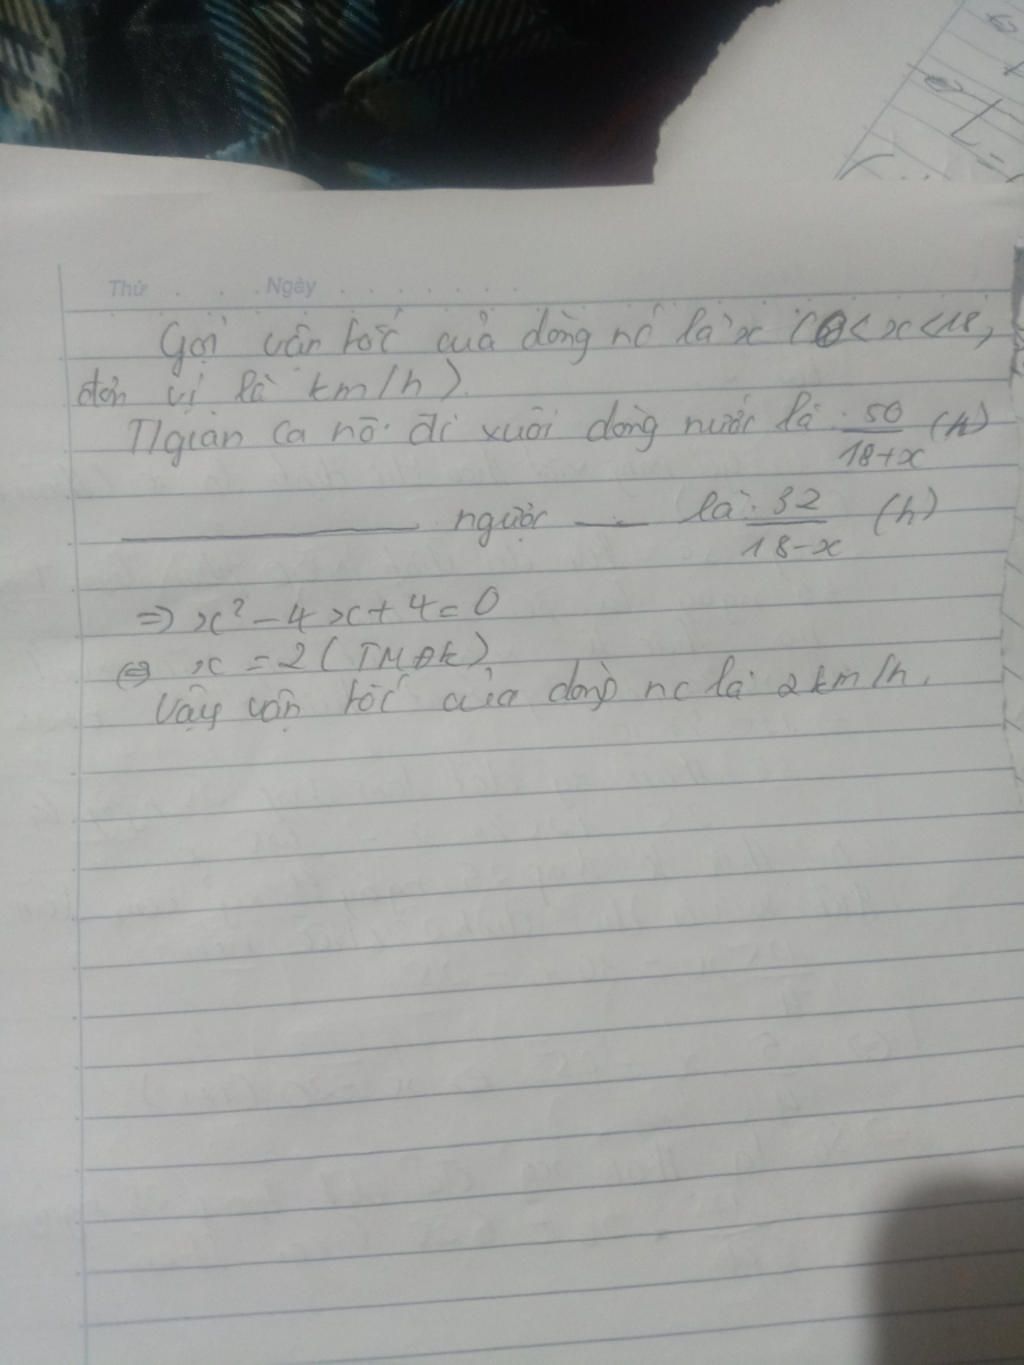 Thứ . . . Ngày . . . . . . .
Gọi vận tốc của dòng nc là x (0<x<18,
đơn vị là km/h).
T/gian ca nô đi xuôi dòng nước là : 50/18+x (h)
_______ ngược ___ là : 32/18-x (h)
=> x² - 4x + 4 = 0
<=> x = 2 (TMĐK)
Vậy vận tốc của dòng nc là 2km/h.